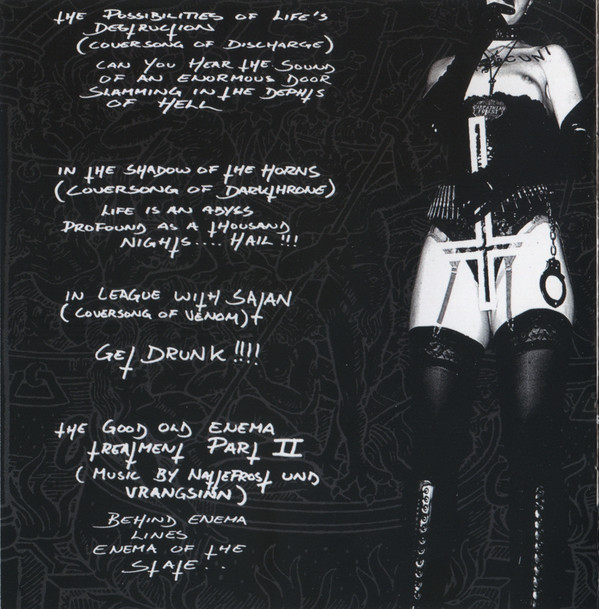 THE POSSIBILITIES OF LIFE'S
DESTRUCTION
(COVERSONG OF DISCHARGE)
CAN YOU HEAR THE SOUND
OF AN ENORMOUS DOOR
SLAMMING IN THE DEPHTS
OF HELL
IN THE SHADOW OF THE HORNS
(COVERSONG OF DARKTHRONE)
LIFE IS AN ABYSS
PROFOUND AS A THOUSAND
NIGHTS.... HAIL !!!
IN LEAGUE WITH SATAN
(COVERSONG OF VENOM)
GET DRUNK !!!!
THE GOOD OLD ENEMA
TREATMENT PART II
(MUSIC BY NATTEFROST UND
VRANGSINN)
BEHIND ENEMA
LINES
ENEMA OF THE
STATE...
CUNT
CARPATHIAN
FOREST